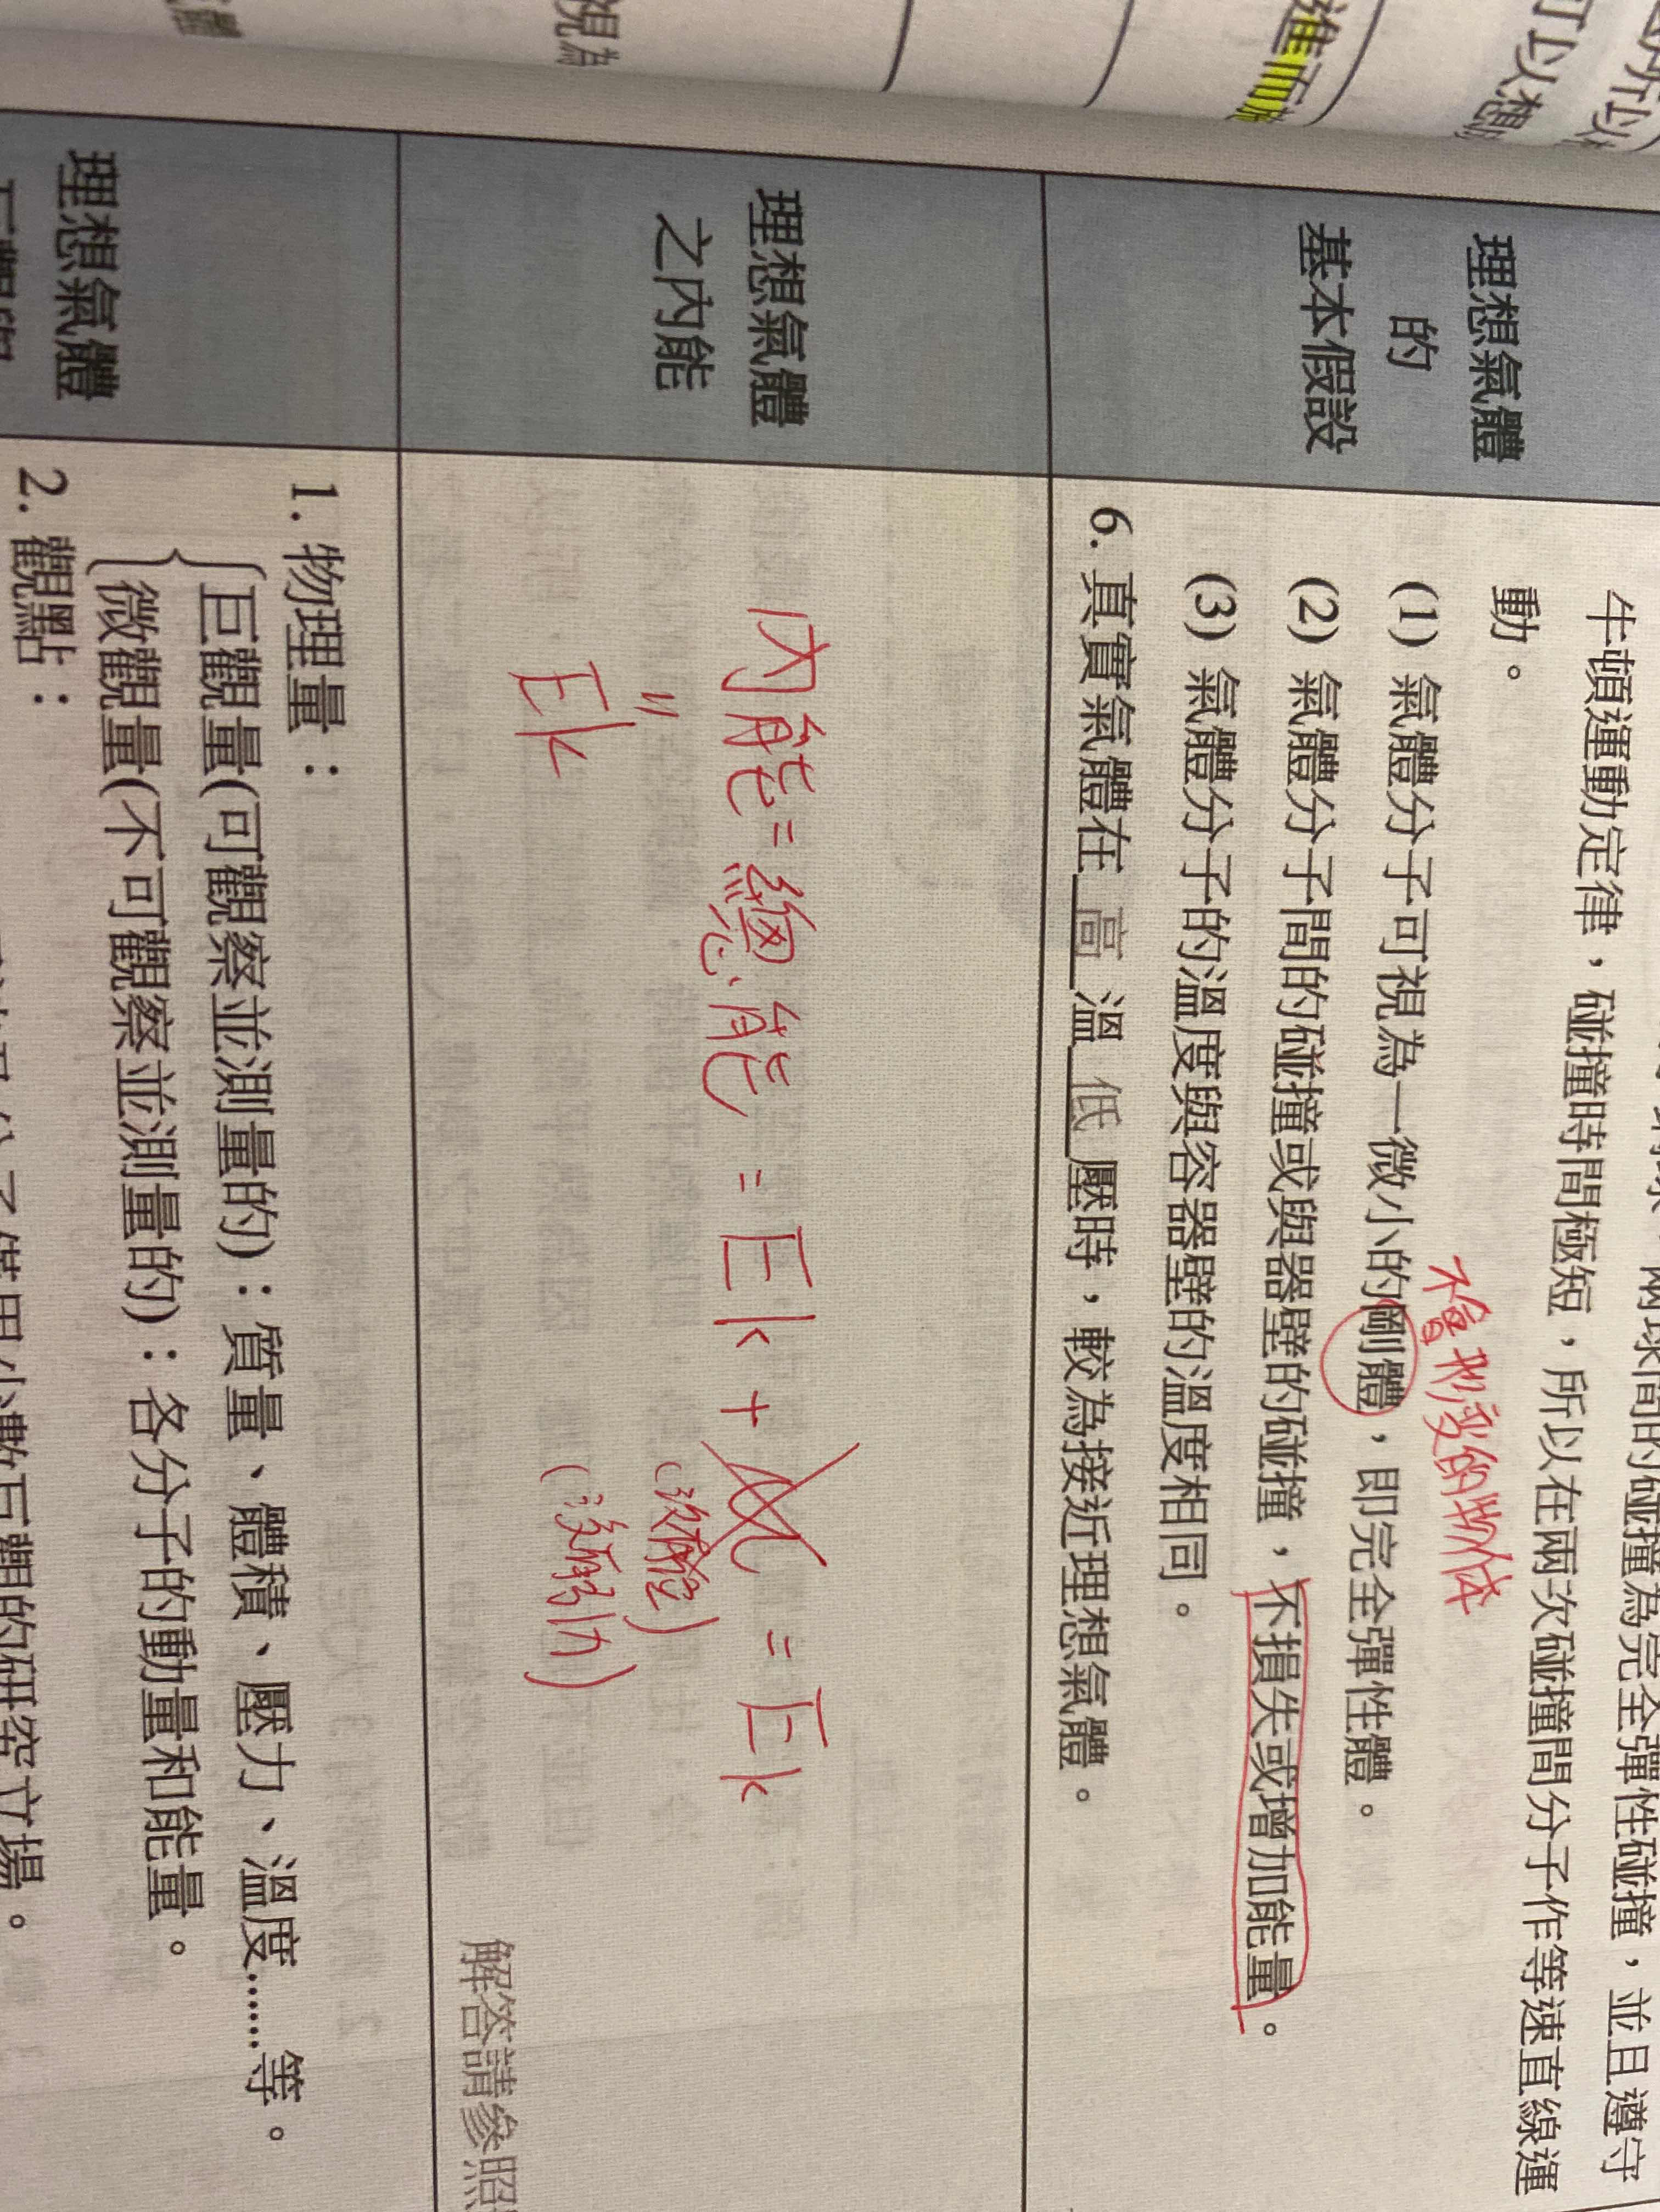 視為
進而
可以想
所以
牛頓運動定律，碰撞時間極短，所以在兩次碰撞間分子作等速直線運
動。
兩球間的碰撞為完全彈性碰撞，並且遵守
理想氣體
的
基本假設
不會形變的物体
(1) 氣體分子可視為一微小的剛體，即完全彈性體。
(2) 氣體分子間的碰撞或與器壁的碰撞，不損失或增加能量。
(3) 氣體分子的溫度與容器壁的溫度相同。
6. 真實氣體在 高 溫 低 壓時，較為接近理想氣體。
理想氣體
之內能
內能=總能 = Ek + U = Ek
"
Ek
(沒有引力)
解答請參照
理想氣體
1. 物理量：
巨觀量(可觀察並測量的)：質量、體積、壓力、溫度……等。
微觀量(不可觀察並測量的)：各分子的動量和能量。
2. 觀點：